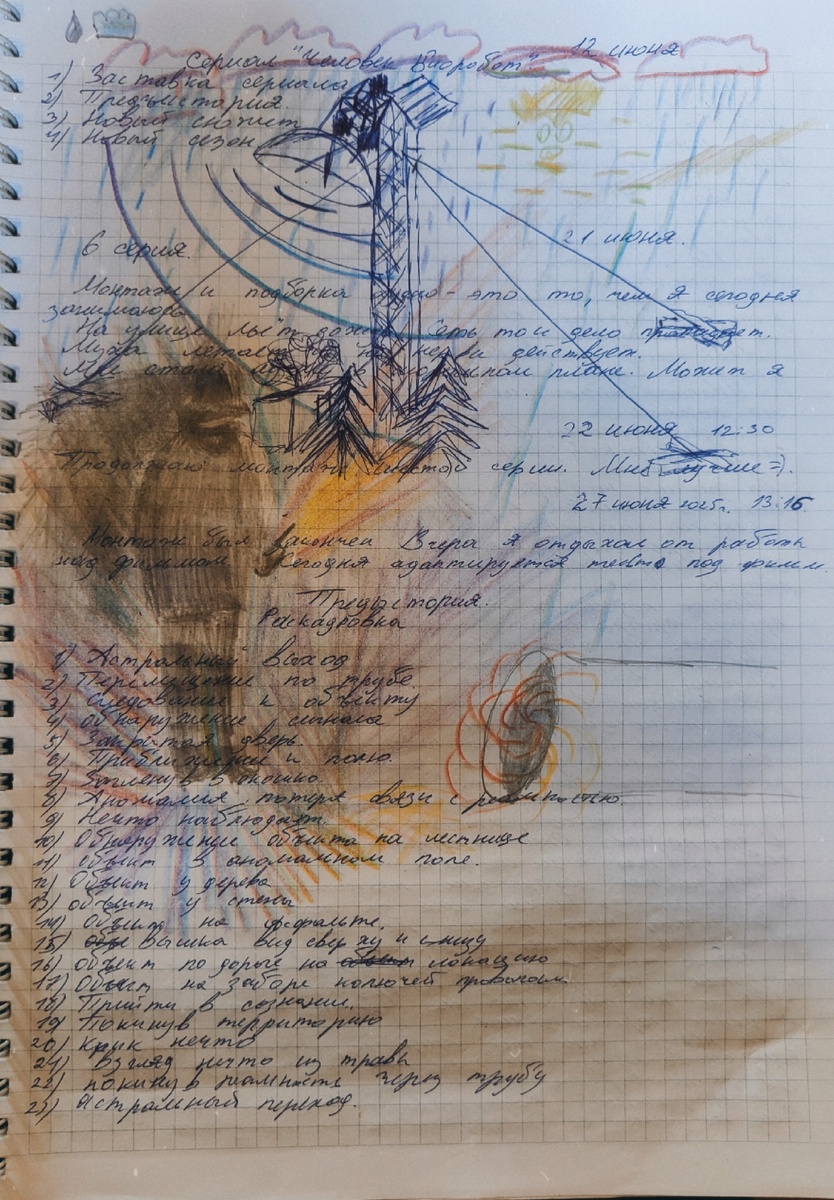 12 июня
Сериал "Человек Биоробот"
1) Заставка сериала
2) Предыстория.
3) Новый сюжет
4) Новый сезон
21 июня.
6 серия.
Монтаж и подборка аудио - это то, чем я сегодня
занимаюсь
На улице льёт дождь. Сеть то и дело пропадает.
Муха летает на нервы действует.
Мне стало в плане. Может я
22 июня 12:30
Продолжаю монтаж шестой серии. Мне лучше =).
27 июня 2025г. 13:15
Монтаж был закончен Вчера я отдыхал от работы
над фильмом. Сегодня адаптируется текст под фильм.
Предыстория.
Раскадровка
1) Астральный выход
2) Перемещение по трубе
3) Следование к объекту
4) Обнаружение сигнала
5) Закрытая дверь.
6) Приближение к полю.
7) Заглянув в окошко.
8) Аномалия, потеря связи с реальностью.
9) Нечто наблюдает.
10) Обнаружение объекта на лестнице
11) Объект в аномальном поле.
12) Объект у дерева
13) объект у стены
14) Объект на асфальте.
15) Вышка вид сверху и снизу
16) объект по дороге на локацию
17) Объект на заборе колючей проволоки.
18) Прийти в сознание.
19) Покинув территорию
20) Крик нечто
21) Взгляд нечто из травы
22) покинув реальность через трубу
23) Астральный переход.